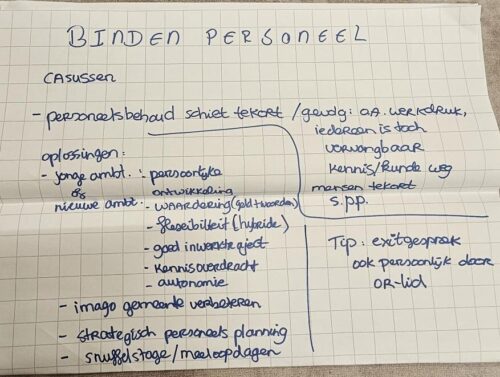 BINDEN PERSONEEL
CASUSSEN
- personeelsbehoud schiet tekort / gevolg: o.a. werkdruk,
iedereen is toch
vervangbaar
kennis/kunde weg
mensen tekort
s.p.p.
oplossingen:
- jonge ambt. : persoonlijke
ontwikkeling
nieuwe ambt: - WAARDERING (geld + woorden)
- flexibiliteit (hybride)
- goed inwerktraject
- kennisoverdracht
- autonomie
- imago gemeente verbeteren
- strategisch personeels planning
- snuffelstage/meeloopdagen
Tip: exitgesprek
ook persoonlijk door
OR-lid